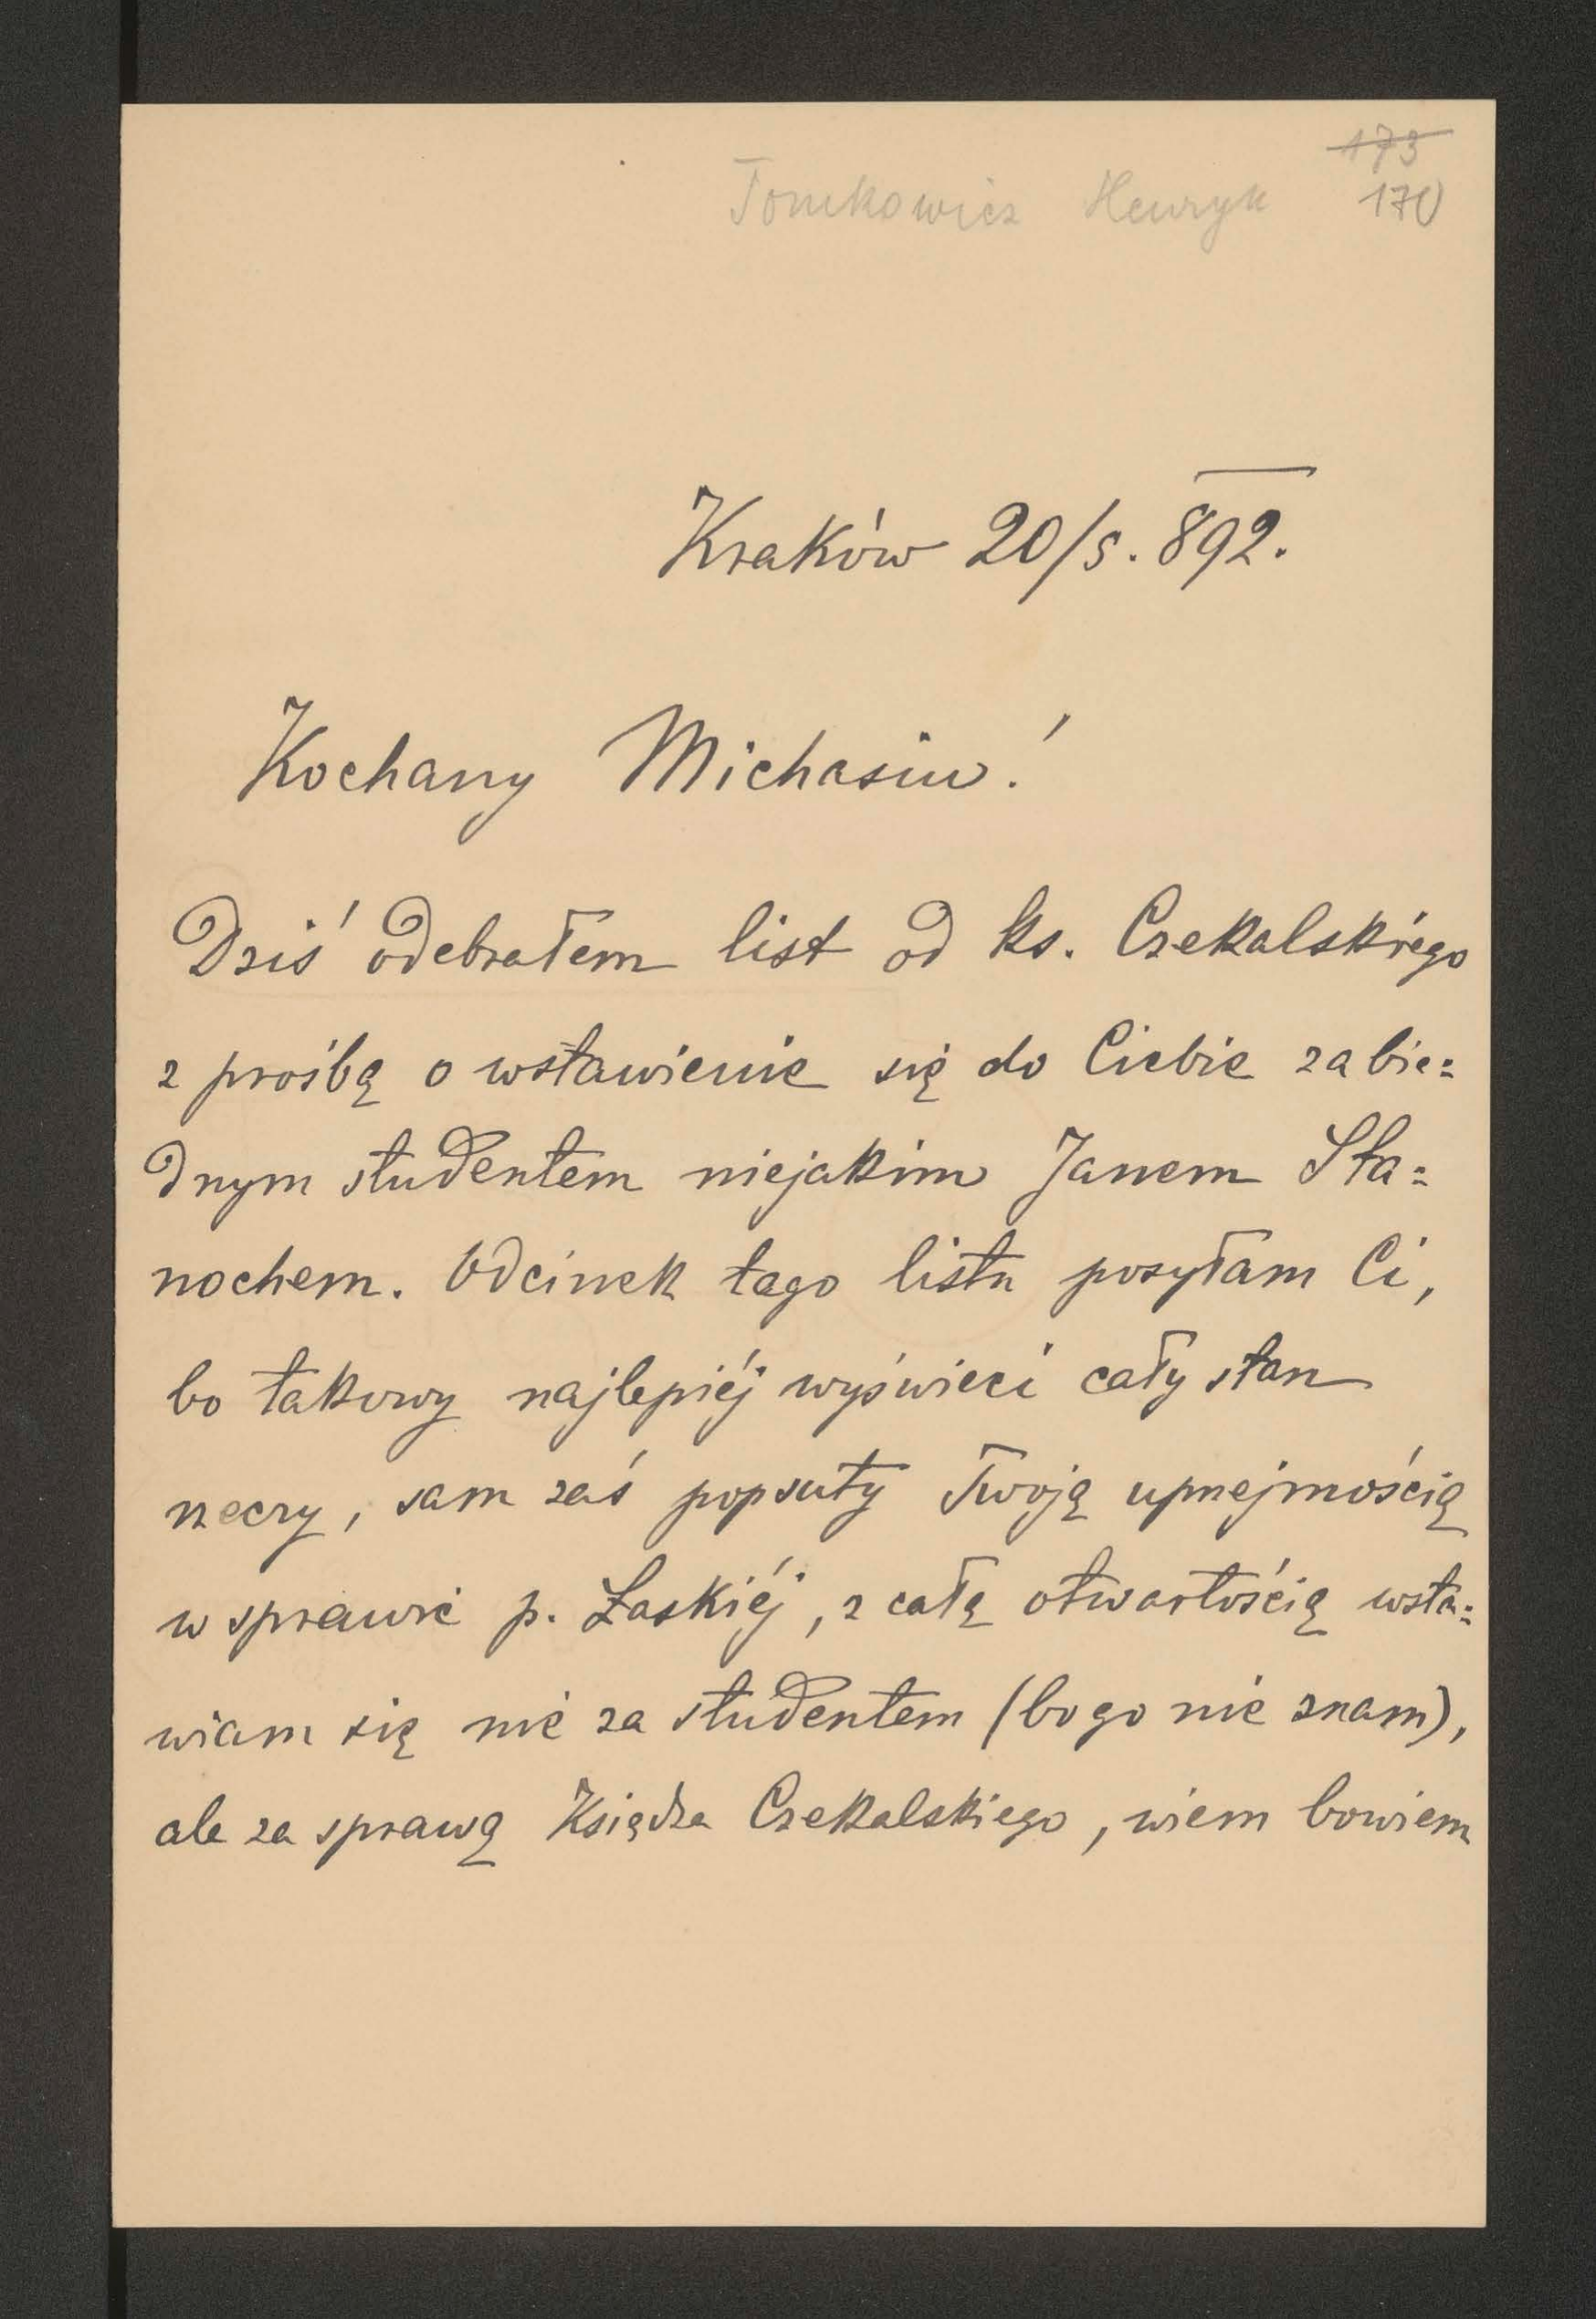 173
Tomkowicz Henryk 170
Kraków 20/5. 892.
Kochany Michasiu!
Dziś odebrałem list od ks. Czekalskiego
z prośbą o wstawienie się do Ciebie za bie=
dnym studentem niejakim Janem Sta=
nochem. Odcinek tego listu posyłam Ci,
bo takowy najlepiéj wyświeci cały stan
rzeczy, sam zaś popsuty Twoją uprzejmością
w sprawie p. Łaskiéj, z całą otwartością wsta=
wiam się nie za studentem (bo go nie znam),
ale za sprawą Księdza Czekalskiego, wiem bowiem